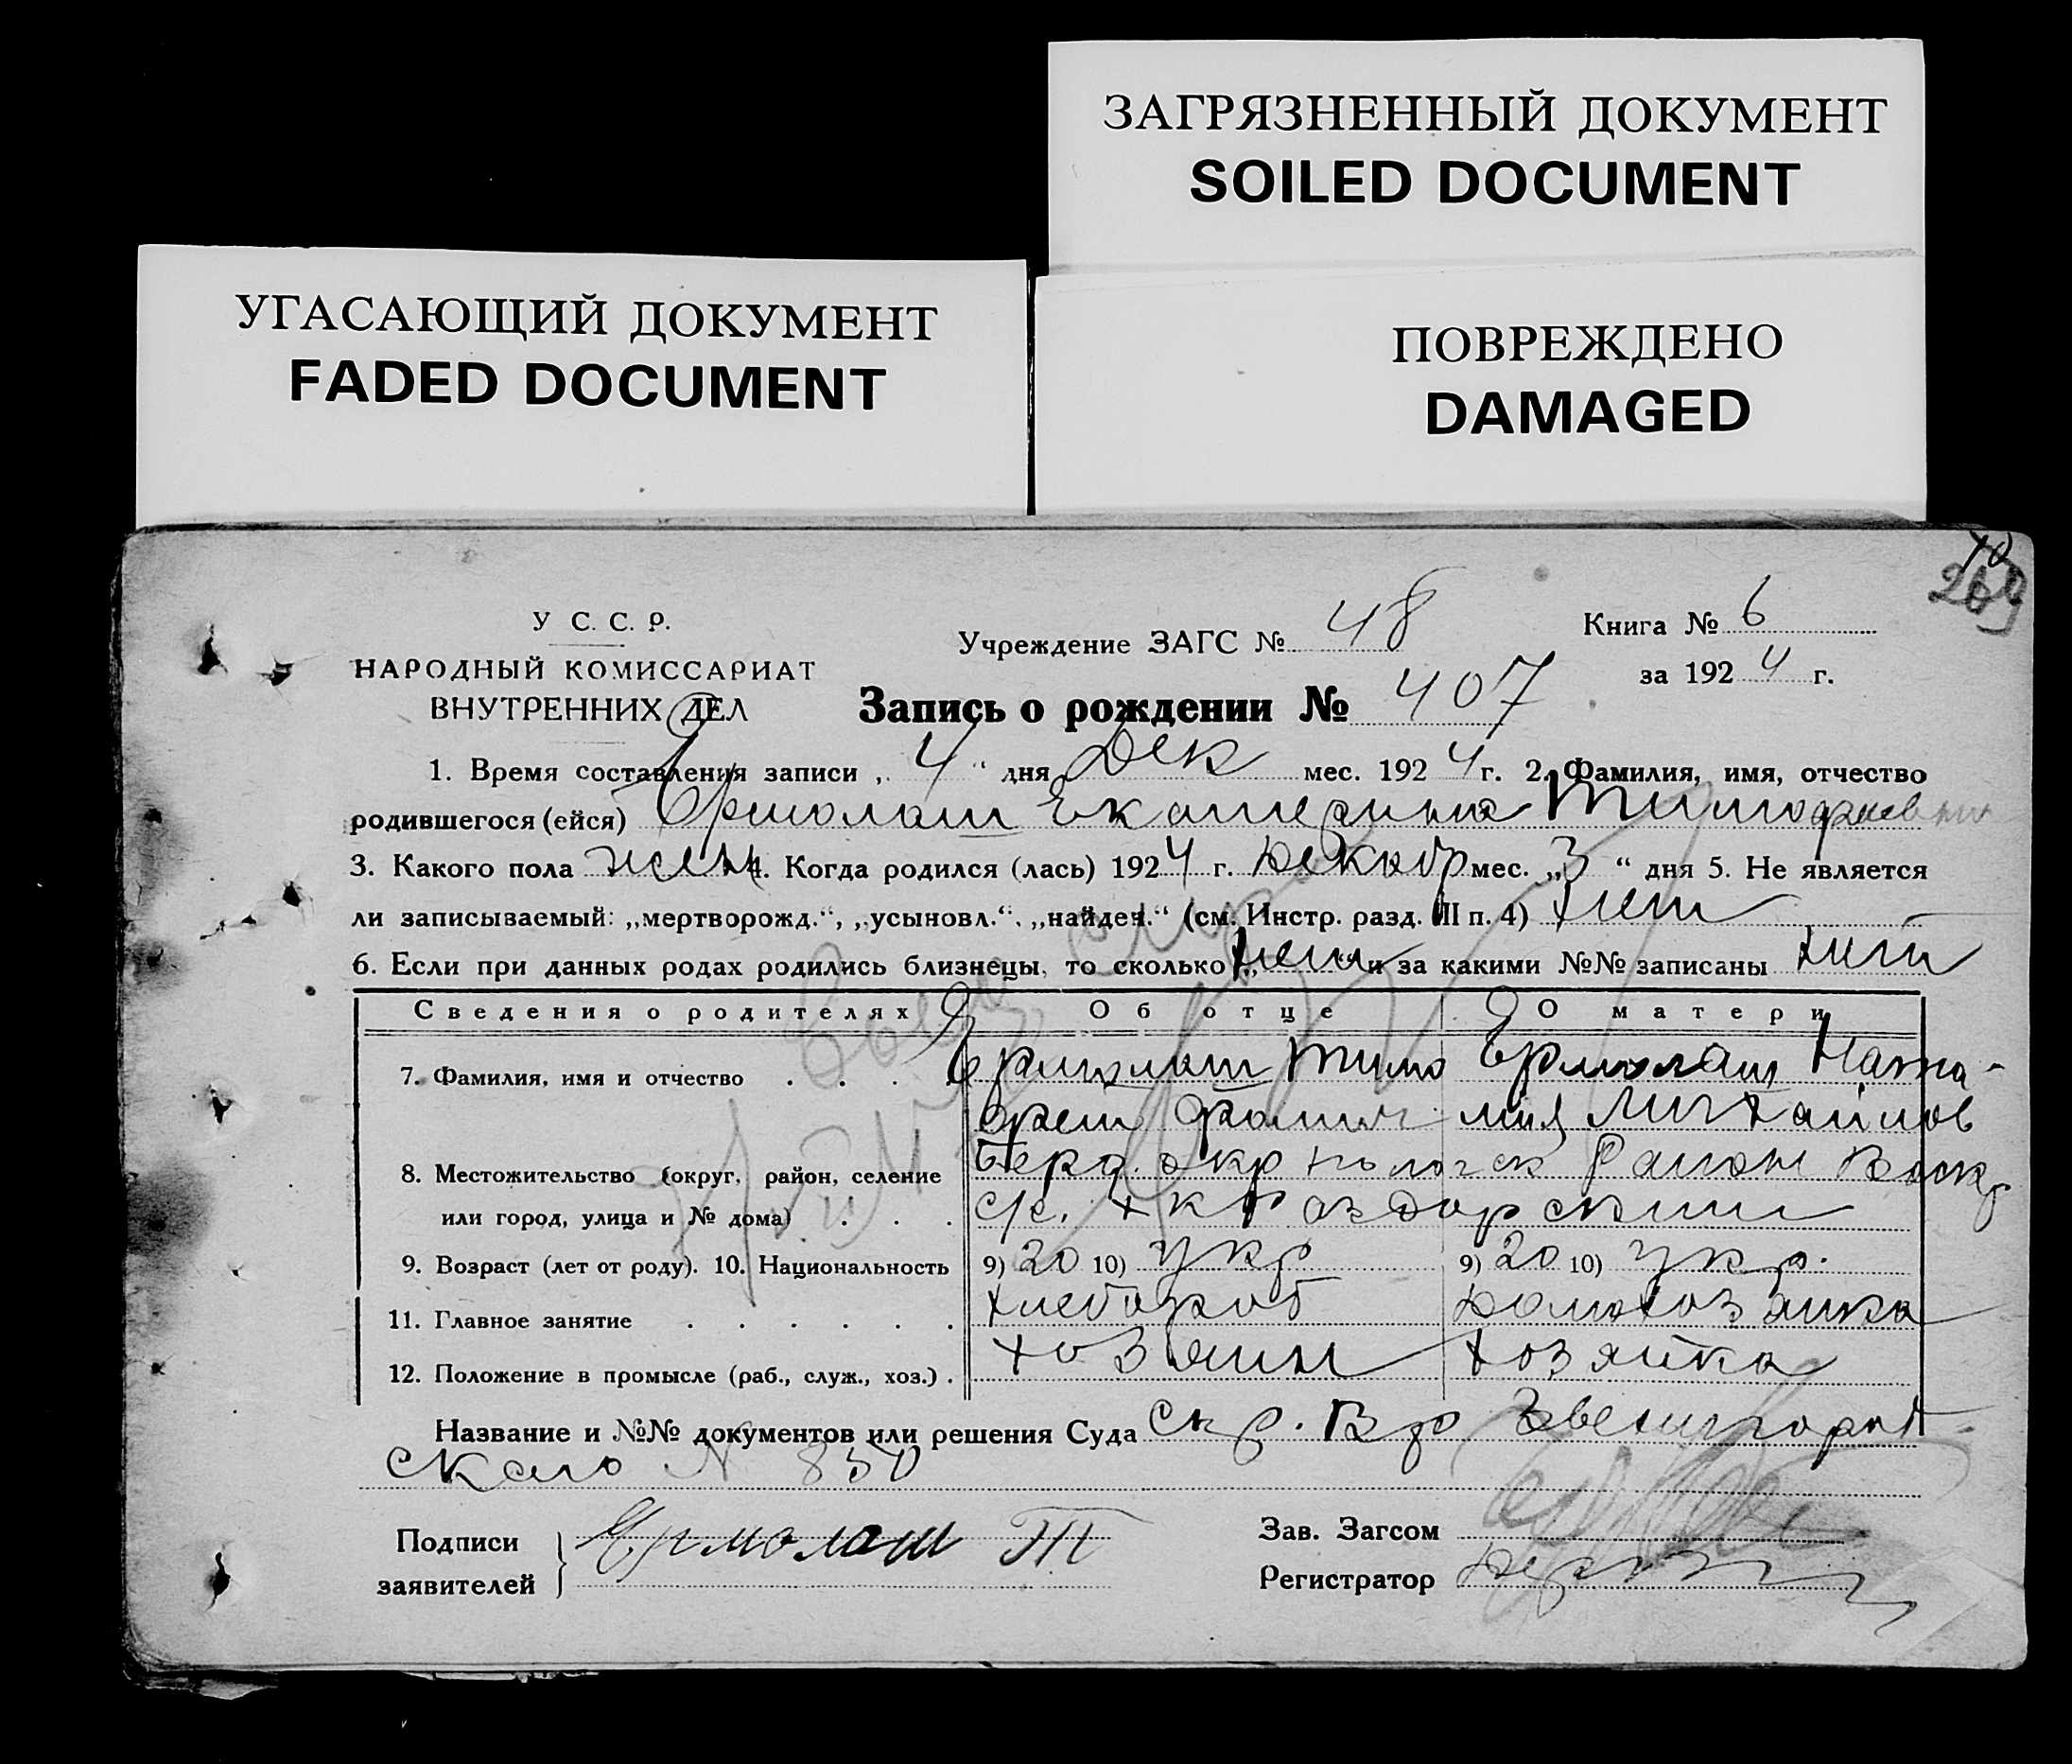 ЗАГРЯЗНЕННЫЙ ДОКУМЕНТ
SOILED DOCUMENT
УГАСАЮЩИЙ ДОКУМЕНТ
FADED DOCUMENT
ПОВРЕЖДЕНО
DAMAGED
У С. С. Р.
НАРОДНЫЙ КОМИССАРИАТ
ВНУТРЕННИХ ДЕЛ
Учреждение ЗАГС № 48
Книга № 6
за 1924 г.
Запись о рождении № 407
1. Время составления записи „4“ дня Дек мес. 1924 г. 2. Фамилия, имя, отчество
родившегося (ейся) Ермолаш Екатерина Тимофиевна
3. Какого пола жен 4. Когда родился (лась) 1924 г. Декабр мес. „3“ дня 5. Не является
ли записываемый: „мертворожд.“, „усыновл.“, „найден.“ (см. Инстр. разд. III п. 4) нет
6. Если при данных родах родились близнецы, то сколько „нет“ и за какими №№ записаны нет
Сведения о родителях Об отце О матери
7. Фамилия, имя и отчество . . . . Ермолаш Тимо Ермолаш Ната-
фей Фомич лия Михайлов
8. Местожительство (округ, район, селение Берд. окр район
или город, улица и № дома) . . . с/с.
9. Возраст (лет от роду). 10. Национальность 9) 20 10) укр 9) 20 10) укр.
11. Главное занятие . . . . . . хлебороб домохозяйка
12. Положение в промысле (раб., служ., хоз.) . хозяин хозяйка
Название и №№ документов или решения Суда
ского N 850
Подписи
заявителей } Ермолаш Т
Зав. Загсом
Регистратор